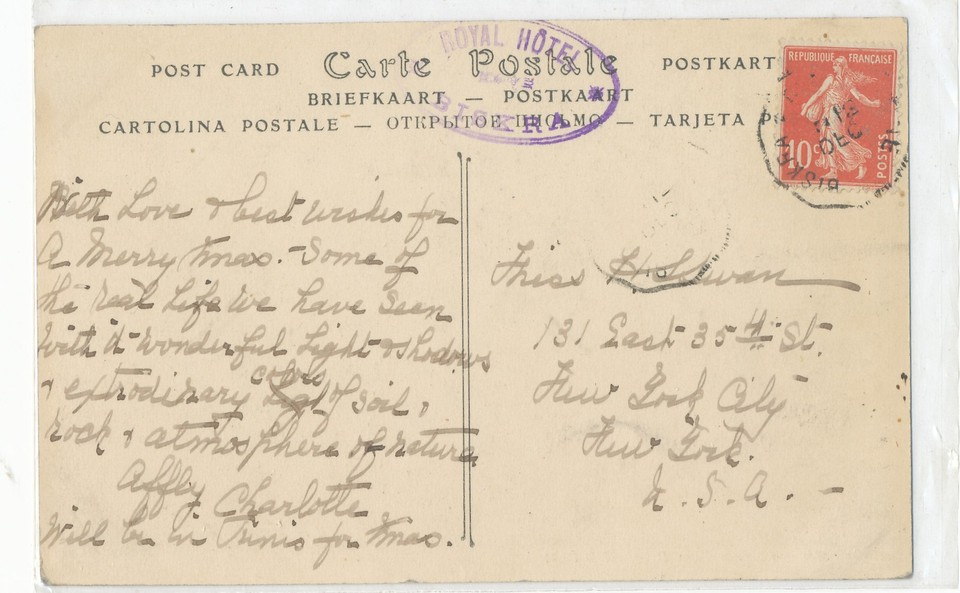 POST CARD Carte Postale POSTKART
BRIEFKAART — POSTKAART
CARTOLINA POSTALE — ОТКРЫТОЕ ПИСЬМО — TARJETA P
ROYAL HÔTEL
BISKRA
REPUBLIQUE FRANÇAISE
10 c
POSTES
BISKRA
DEC
With Love & best wishes for
A Merry Xmas. - Some of
the real Life we have seen
with it wonderful Light & Shadows
& extrodinary colors of soil &
rock & atmosphere of nature
Affly Charlotte
Will be in Tunis for Xmas.
Miss H
131 East 35th St.
New York City
New York.
U. S. A. -